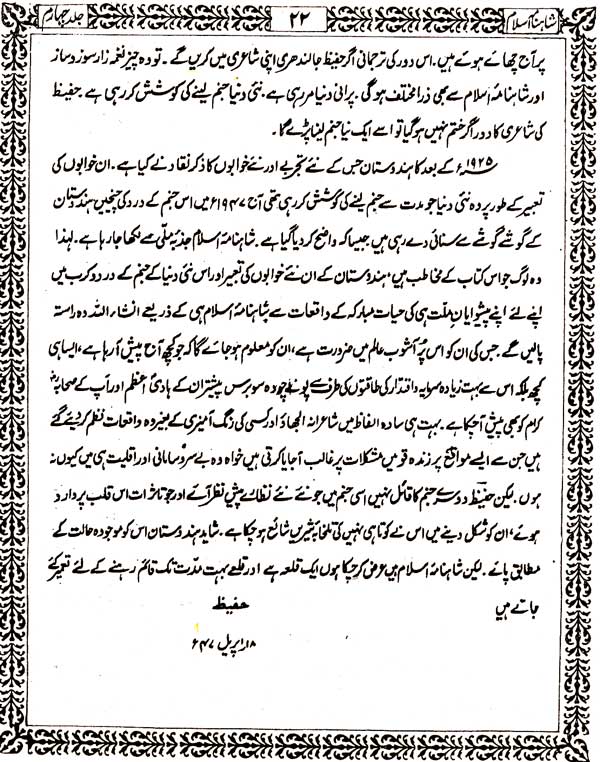 شاہنامۂ اسلام ۲۲ جلد چہارم
پر آج چھائے ہوئے ہیں۔ اس دور کی ترجمانی اگر حفیظ جالندھری اپنی شاعری میں کریں گے۔ تو وہ چیز نغمہ زار سوز و ساز
اور شاہنامۂ اسلام سے بھی ذرا مختلف ہوگی۔ پرانی دنیا مر رہی ہے۔ نئی دنیا جنم لینے کی کوشش کر رہی ہے۔ حفیظ
کی شاعری کا دور اگر ختم نہیں ہوگیا تو اسے ایک نیا جنم لینا پڑے گا۔
۱۹۲۵ء کے بعد کا ہندوستان جس کے نئے تجربے اور نئے خوابوں کا ذکر نقاد نے کیا ہے۔ ان خوابوں کی
تعبیر کے طور پر وہ نئی دنیا جو مدت سے جنم لینے کی کوشش کر رہی تھی آج ۱۹۴۷ء میں اس جنم کے درد کی چیخیں ہندوستان
کے گوشے گوشے سے سنائی دے رہی ہیں۔ جیسا کہ واضح کر دیا گیا ہے۔ شاہنامۂ اسلام جذبۂ ملّی سے لکھا جا رہا ہے۔ لہٰذا
وہ لوگ جو اس کتاب کے مخاطب ہیں، ہندوستان کے ان نئے خوابوں کی تعبیر اور اس نئی دنیا کے جنم کے درد و کرب میں
اپنے لئے اپنے پیشوایانِ ملّت ہی کی حیات مبارکہ کے واقعات سے شاہنامۂ اسلام ہی کے ذریعے انشاء اللہ وہ راستہ
پالیں گے۔ جس کی ان کو اس پُر آشوب عالم میں ضرورت ہے، ان کو معلوم ہو جائے گا کہ جو کچھ آج پیش آ رہا ہے، ایسا ہی
کچھ بلکہ اس سے بہت زیادہ سرمایہ و اقتدار کی طاقتوں کی طرف سے پونے چودہ سو برس پیشتر ان کے ہادیٔ اعظم اور آپ کے صحابہ
کرام کو بھی پیش آچکا ہے۔ بہت ہی سادہ الفاظ میں شاعرانہ الجھاؤ اور کسی کی رنگ آمیزی کے بغیر وہ واقعات نظم کر دیئے گئے
ہیں جن سے ایسے مواقع پر زندہ قومیں مشکلات پر غالب آ جایا کرتی ہیں خواہ وہ بے سروسامانی اور اقلیت ہی میں کیوں نہ
ہوں۔ لیکن حفیظ دوسرے جنم کا قائل نہیں اسی جنم میں جو نئے نئے نظارے پیش نظر آئے اور جو تاثرات اس قلب پر وارد
ہوئے، ان کو شکل دینے میں اس نے کوتاہی نہیں کی تلخابۂ شیریں شائع ہو چکا ہے۔ شاید ہندوستان اس کو موجودہ حالت کے
مطابق پائے۔ لیکن شاہنامۂ اسلام میں عرض کر چکا ہوں ایک قلعہ ہے اور قلعے بہت مدّت تک قائم رہنے کے لئے تعمیر کئے
جاتے ہیں
حفیظ
۱۸ اپریل ۴۷ء